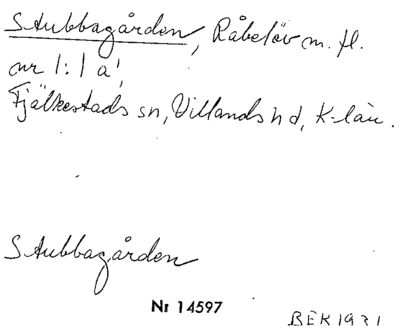 Stubbagården, Råbelöv m. fl.
nr 1:1 a',
Fjälkestads sn, Villands hd, K-län.
Stubbagården
Nr 14597
BEK 1931